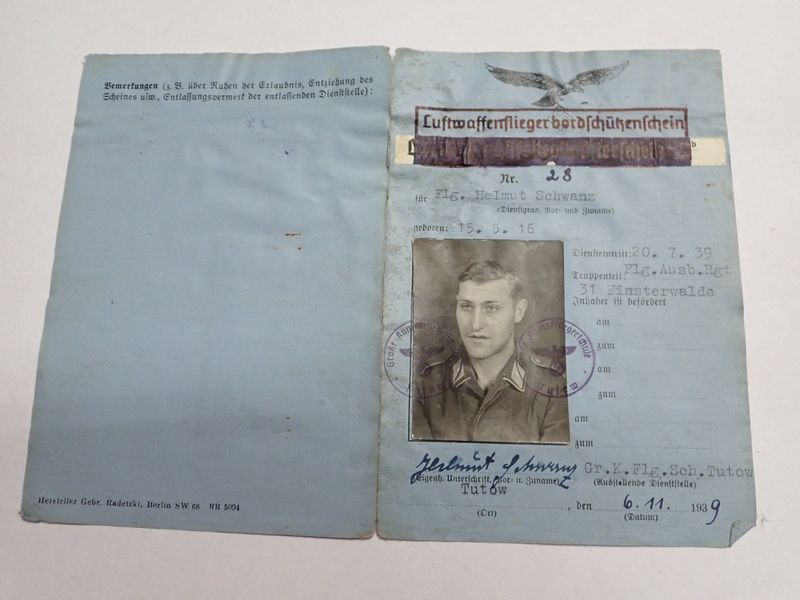 Bemerkungen (z. B. über Ruhen der Erlaubnis, Entziehung des
Scheines usw., Entlassungsvermerk der entlassenden Dienststelle):
Hersteller Gebr. Radetzki, Berlin SW 68 RR 5094
Luftwaffenfliegerbordschützenschein
Nr. 28
für Flg. Helmut Schwanz
(Dienstgrad, Vor- und Zuname)
geboren: 15. 5. 16
Diensteintritt: 20. 7. 39
Truppenteil: Flg.Ausb.Rgt
31 Finsterwalde
Inhaber ist befördert
am
zum
am
zum
am
zum
Große Kampffliegerschule
Tutow
Helmut Schwanz
(Eigenh. Unterschrift, Vor- u. Zuname)
Gr.K.Flg.Sch.Tutow
(Ausstellende Dienststelle)
Tutow, den 6. 11. 1939
(Ort) (Datum)